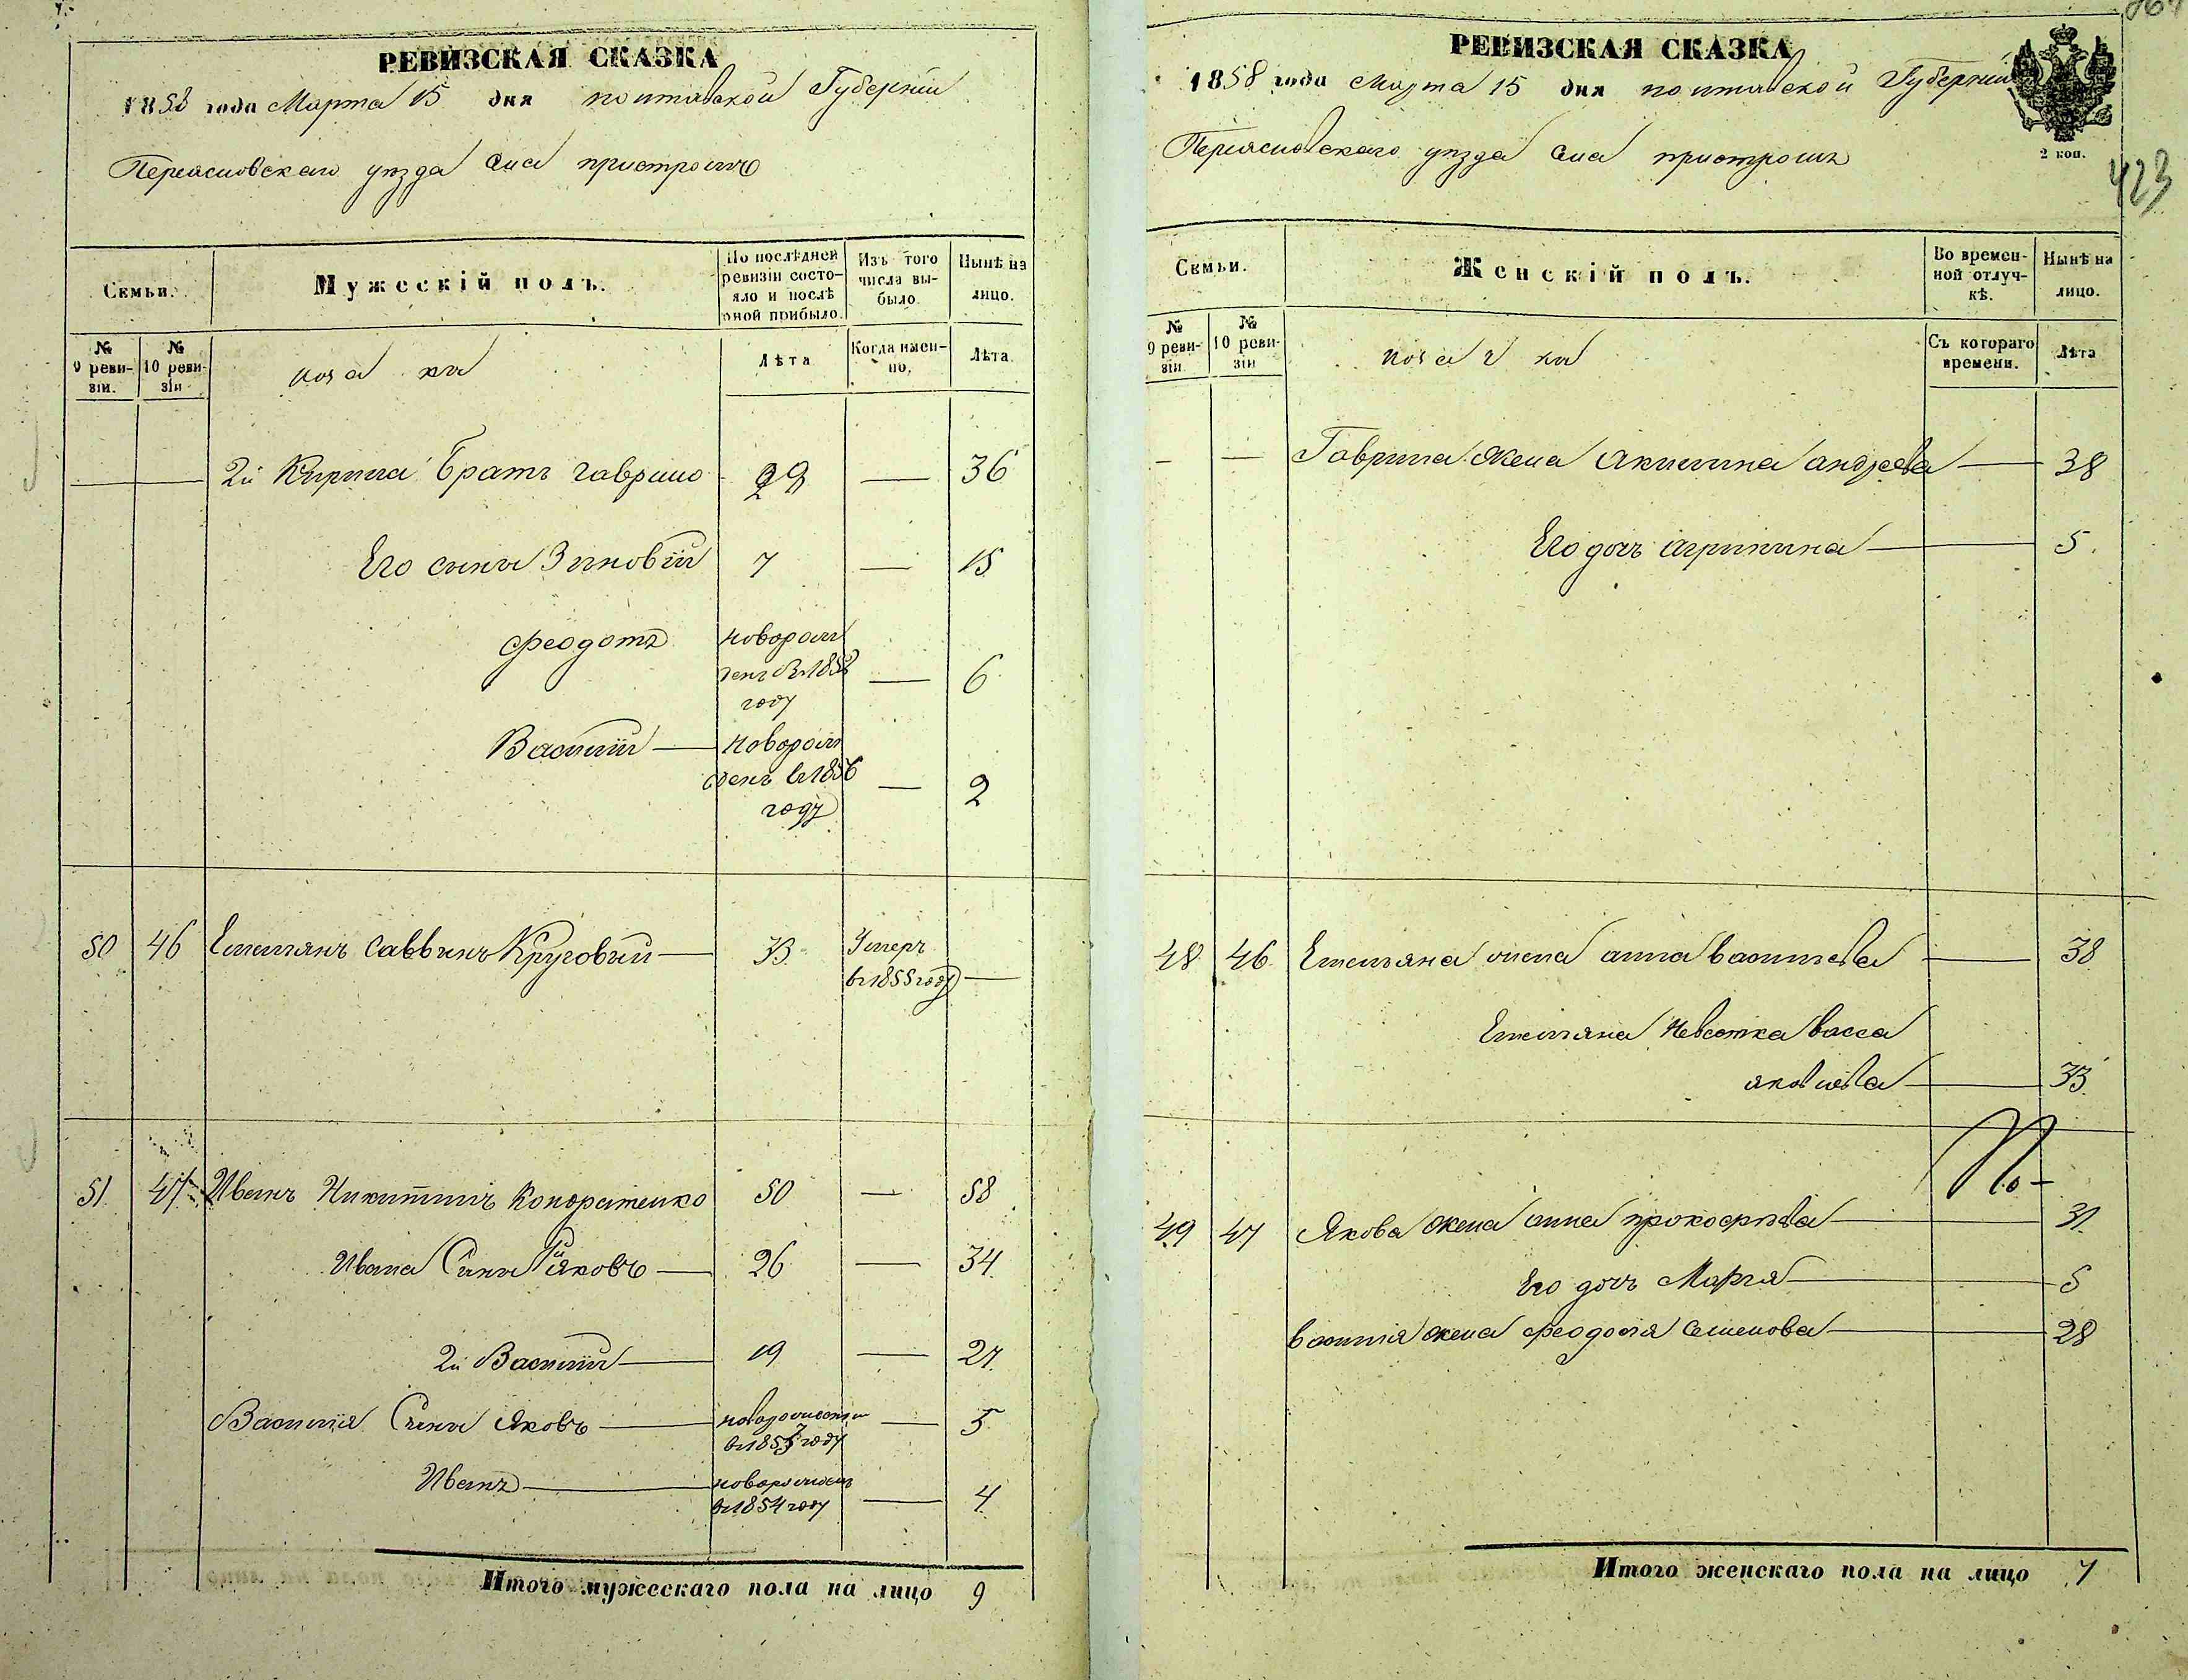 РЕВИЗСКАЯ СКАЗКА
1858 года Марта 15 дня полтавской Губернии
Переясловскаго уезда села пристромъ
Семьи.
Мужескій полъ.
По послѣдней ревизіи состо-
яло и послѣ
оной прибыло.
Изъ того
числа вы-
было.
Нынѣ на
лицо.
№
9 реви-
зіи.
№
10 реви-
зіи
Лѣта
Когда имен-
но.
Лѣта
2й Кирила братъ гаврило 29 — 36
Его сыны Зиновій 7 — 15
феодотъ новорож
денъ в 1852
году — 6
Василій — новорож
денъ в 1856
году — 2
50 46 Емельянъ Саввинъ Круговый — 33 Умеръ
в 1855 году —
51 47 Иванъ Никитинъ Кондратенко 50 — 58
Ивана Сыны 1й Яковъ — 26 — 34
2й Василій — 19 — 27
Василія Сыны Яковъ — новорожденъ
в 1853 году — 5
Иванъ — новорожденъ
в 1854 году — 4
Итого мужескаго пола на лицо 9
РЕВИЗСКАЯ СКАЗКА
2 коп.
423
1858 года Марта 15 дня полтавской Губернии
Переясловскаго уезда села пристромъ
Семьи.
Женскій полъ.
Во времен-
ной отлуч-
кѣ.
Нынѣ на
лицо.
№
9 реви-
зіи
№
10 реви-
зіи
Съ котораго
времени.
Лѣта
— — Гаврила жена Акилина андреева — 38
Его дочь агрипина — 5
48 46 Емельяна жена анна васильева — 38
Емельяна Невестка васса
яковлева — 33
49 47 Якова жена анна прокофьева — 31
Его дочь Марья — 5
василія жена феодосія Семенова — 28
Итого женскаго пола на лицо 7